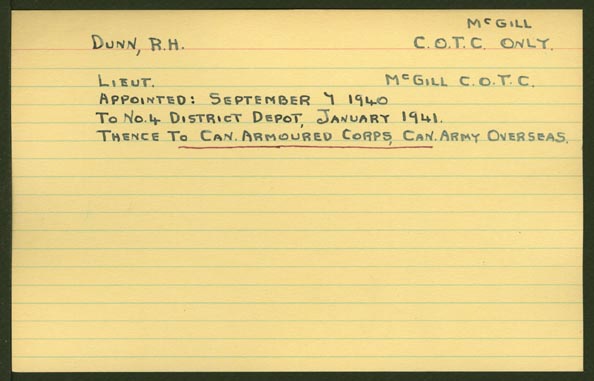 McGILL
DUNN, R.H. C.O.T.C. ONLY.
LIEUT. McGILL C.O.T.C.
APPOINTED: SEPTEMBER 7 1940
TO No.4 DISTRICT DEPOT, JANUARY 1941.
THENCE TO CAN. ARMOURED CORPS, CAN. ARMY OVERSEAS.